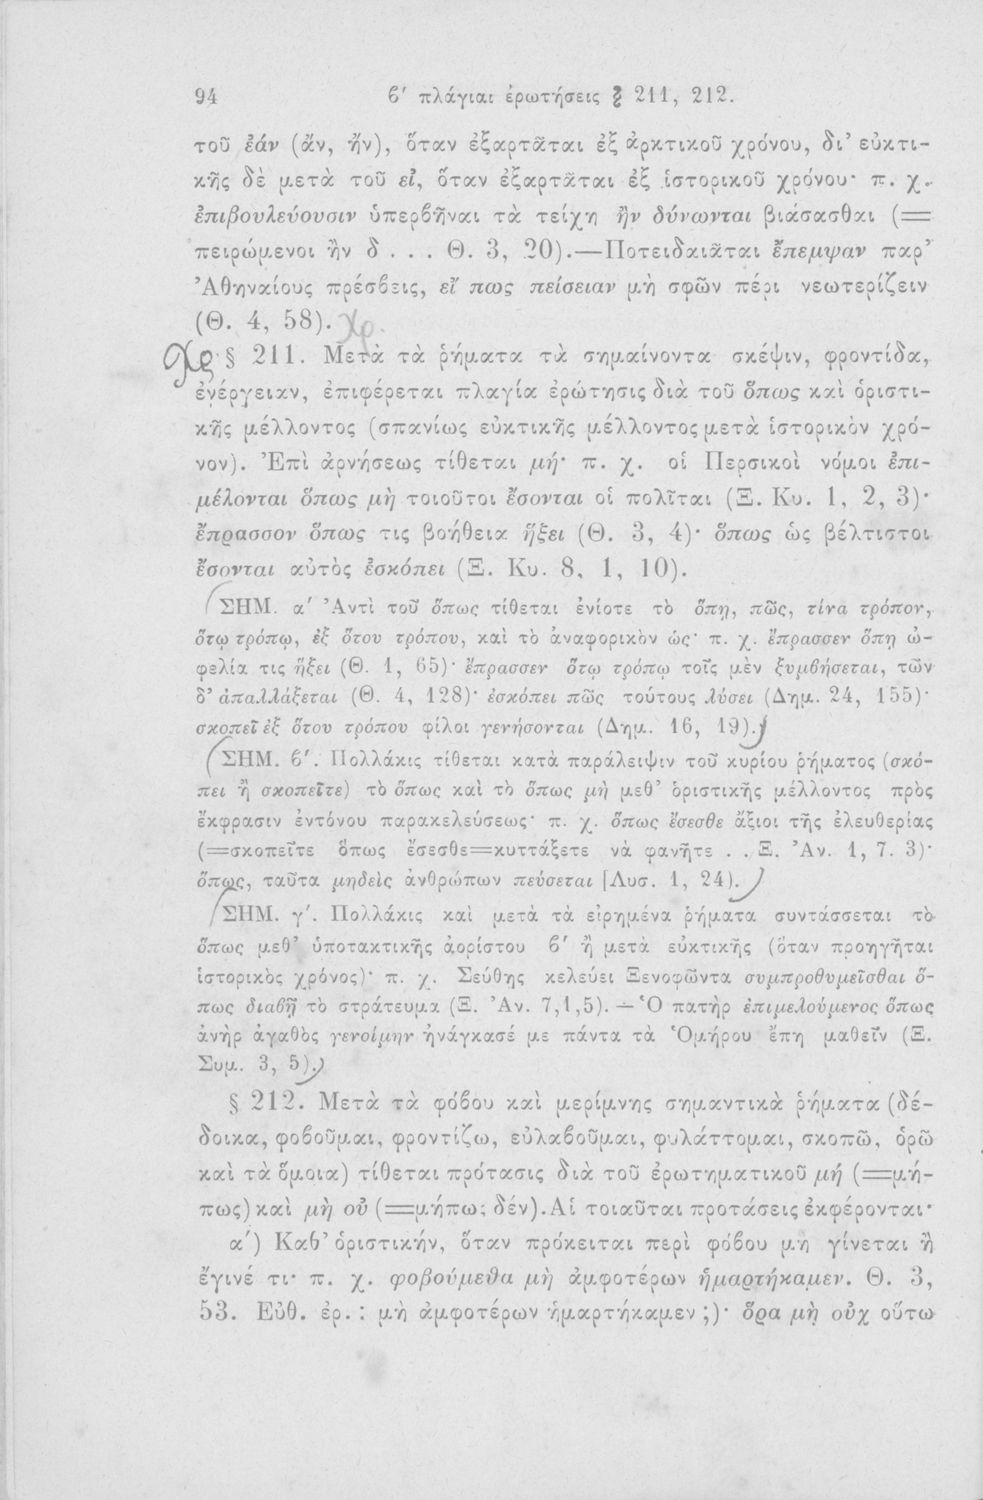 94 β′ πλάγιαι ἐρωτήσεις § 211, 212.
τοῦ ἐάν (ἄν, ἤν), ὅταν ἐξαρτᾶται ἐξ ἀρκτικοῦ χρόνου, δι’ εὐκτι-
κῆς δὲ μετὰ τοῦ εἰ, ὅταν ἐξαρτᾶται ἐξ ἱστορικοῦ χρόνου· π. χ.
ἐπιβουλεύουσιν ὑπερβῆναι τὰ τείχη ἢν δύνωνται βιάσασθαι (=
πειρώμενοι ἢν δ . . . Θ. 3, 20).—Ποτειδαιᾶται ἔπεμψαν παρ’
Ἀθηναίους πρέσβεις, εἴ πως πείσειαν μὴ σφῶν πέρι νεωτερίζειν
(Θ. 4, 58). Χρ.
Χρ § 211. Μετὰ τὰ ῥήματα τὰ σημαίνοντα σκέψιν, φροντίδα,
ἐνέργειαν, ἐπιφέρεται πλαγία ἐρώτησις διὰ τοῦ ὅπως καὶ ὁριστι-
κῆς μέλλοντος (σπανίως εὐκτικῆς μέλλοντος μετὰ ἱστορικὸν χρό-
νον). Ἐπὶ ἀρνήσεως τίθεται μή· π. χ. οἱ Περσικοὶ νόμοι ἐπι-
μέλονται ὅπως μὴ τοιοῦτοι ἔσονται οἱ πολῖται (Ξ. Κυ. 1, 2, 3)·
ἔπρασσον ὅπως τις βοήθεια ἥξει (Θ. 3, 4)· ὅπως ὡς βέλτιστοι
ἔσονται αὐτὸς ἐσκόπει (Ξ. Κυ. 8, 1, 10).
ΣΗΜ. α′ Ἀντὶ τοῦ ὅπως τίθεται ἐνίοτε τὸ ὅπῃ, πῶς, τίνα τρόπον,
ὅτῳ τρόπῳ, ἐξ ὅτου τρόπου, καὶ τὸ ἀναφορικὸν ὡς· π. χ. ἔπρασσεν ὅπῃ ὠ-
φελία τις ἥξει (Θ. 1, 65)· ἔπρασσεν ὅτῳ τρόπῳ τοῖς μὲν ξυμβήσεται, τῶν
δ’ ἀπαλλάξεται (Θ. 4, 128)· ἐσκόπει πῶς τούτους λύσει (Δημ. 24, 155)·
σκοπεῖ ἐξ ὅτου τρόπου φίλοι γενήσονται (Δημ. 16, 19).
ΣΗΜ. β′. Πολλάκις τίθεται κατὰ παράλειψιν τοῦ κυρίου ῥήματος (σκό-
πει ἢ σκοπεῖτε) τὸ ὅπως καὶ τὸ ὅπως μὴ μεθ’ ὁριστικῆς μέλλοντος πρὸς
ἔκφρασιν ἐντόνου παρακελεύσεως· π. χ. ὅπως ἔσεσθε ἄξιοι τῆς ἐλευθερίας
(=σκοπεῖτε ὅπως ἔσεσθε=κυττάξετε νὰ φανῆτε . . Ξ. Ἀν. 1, 7. 3)·
ὅπως, ταῦτα μηδεὶς ἀνθρώπων πεύσεται [Λυσ. 1, 24).
ΣΗΜ. γ′. Πολλάκις καὶ μετὰ τὰ εἰρημένα ῥήματα συντάσσεται τὸ
ὅπως μεθ’ ὑποτακτικῆς ἀορίστου β′ ἢ μετὰ εὐκτικῆς (ὅταν προηγῆται
ἱστορικὸς χρόνος)· π. χ. Σεύθης κελεύει Ξενοφῶντα συμπροθυμεῖσθαι ὅ-
πως διαβῇ τὸ στράτευμα (Ξ. Ἀν. 7,1,5). — Ὁ πατὴρ ἐπιμελούμενος ὅπως
ἀνὴρ ἀγαθὸς γενοίμην ἠνάγκασέ με πάντα τὰ Ὁμήρου ἔπη μαθεῖν (Ξ.
Συμ. 3, 5).
§ 212. Μετὰ τὰ φόβου καὶ μερίμνης σημαντικὰ ῥήματα (δέ-
δοικα, φοβοῦμαι, φροντίζω, εὐλαβοῦμαι, φυλάττομαι, σκοπῶ, ὁρῶ
καὶ τὰ ὅμοια) τίθεται πρότασις διὰ τοῦ ἐρωτηματικοῦ μή (=μή-
πως) καὶ μὴ οὐ (=μήπως δέν). Αἱ τοιαῦται προτάσεις ἐκφέρονται·
α′) Καθ’ ὁριστικήν, ὅταν πρόκειται περὶ φόβου μὴ γίνεται ἢ
ἔγινέ τι· π. χ. φοβούμεθα μὴ ἀμφοτέρων ἡμαρτήκαμεν. Θ. 3,
53. Εὐθ. ἐρ. : μὴ ἀμφοτέρων ἡμαρτήκαμεν ;)· ὅρα μὴ οὐχ οὕτω